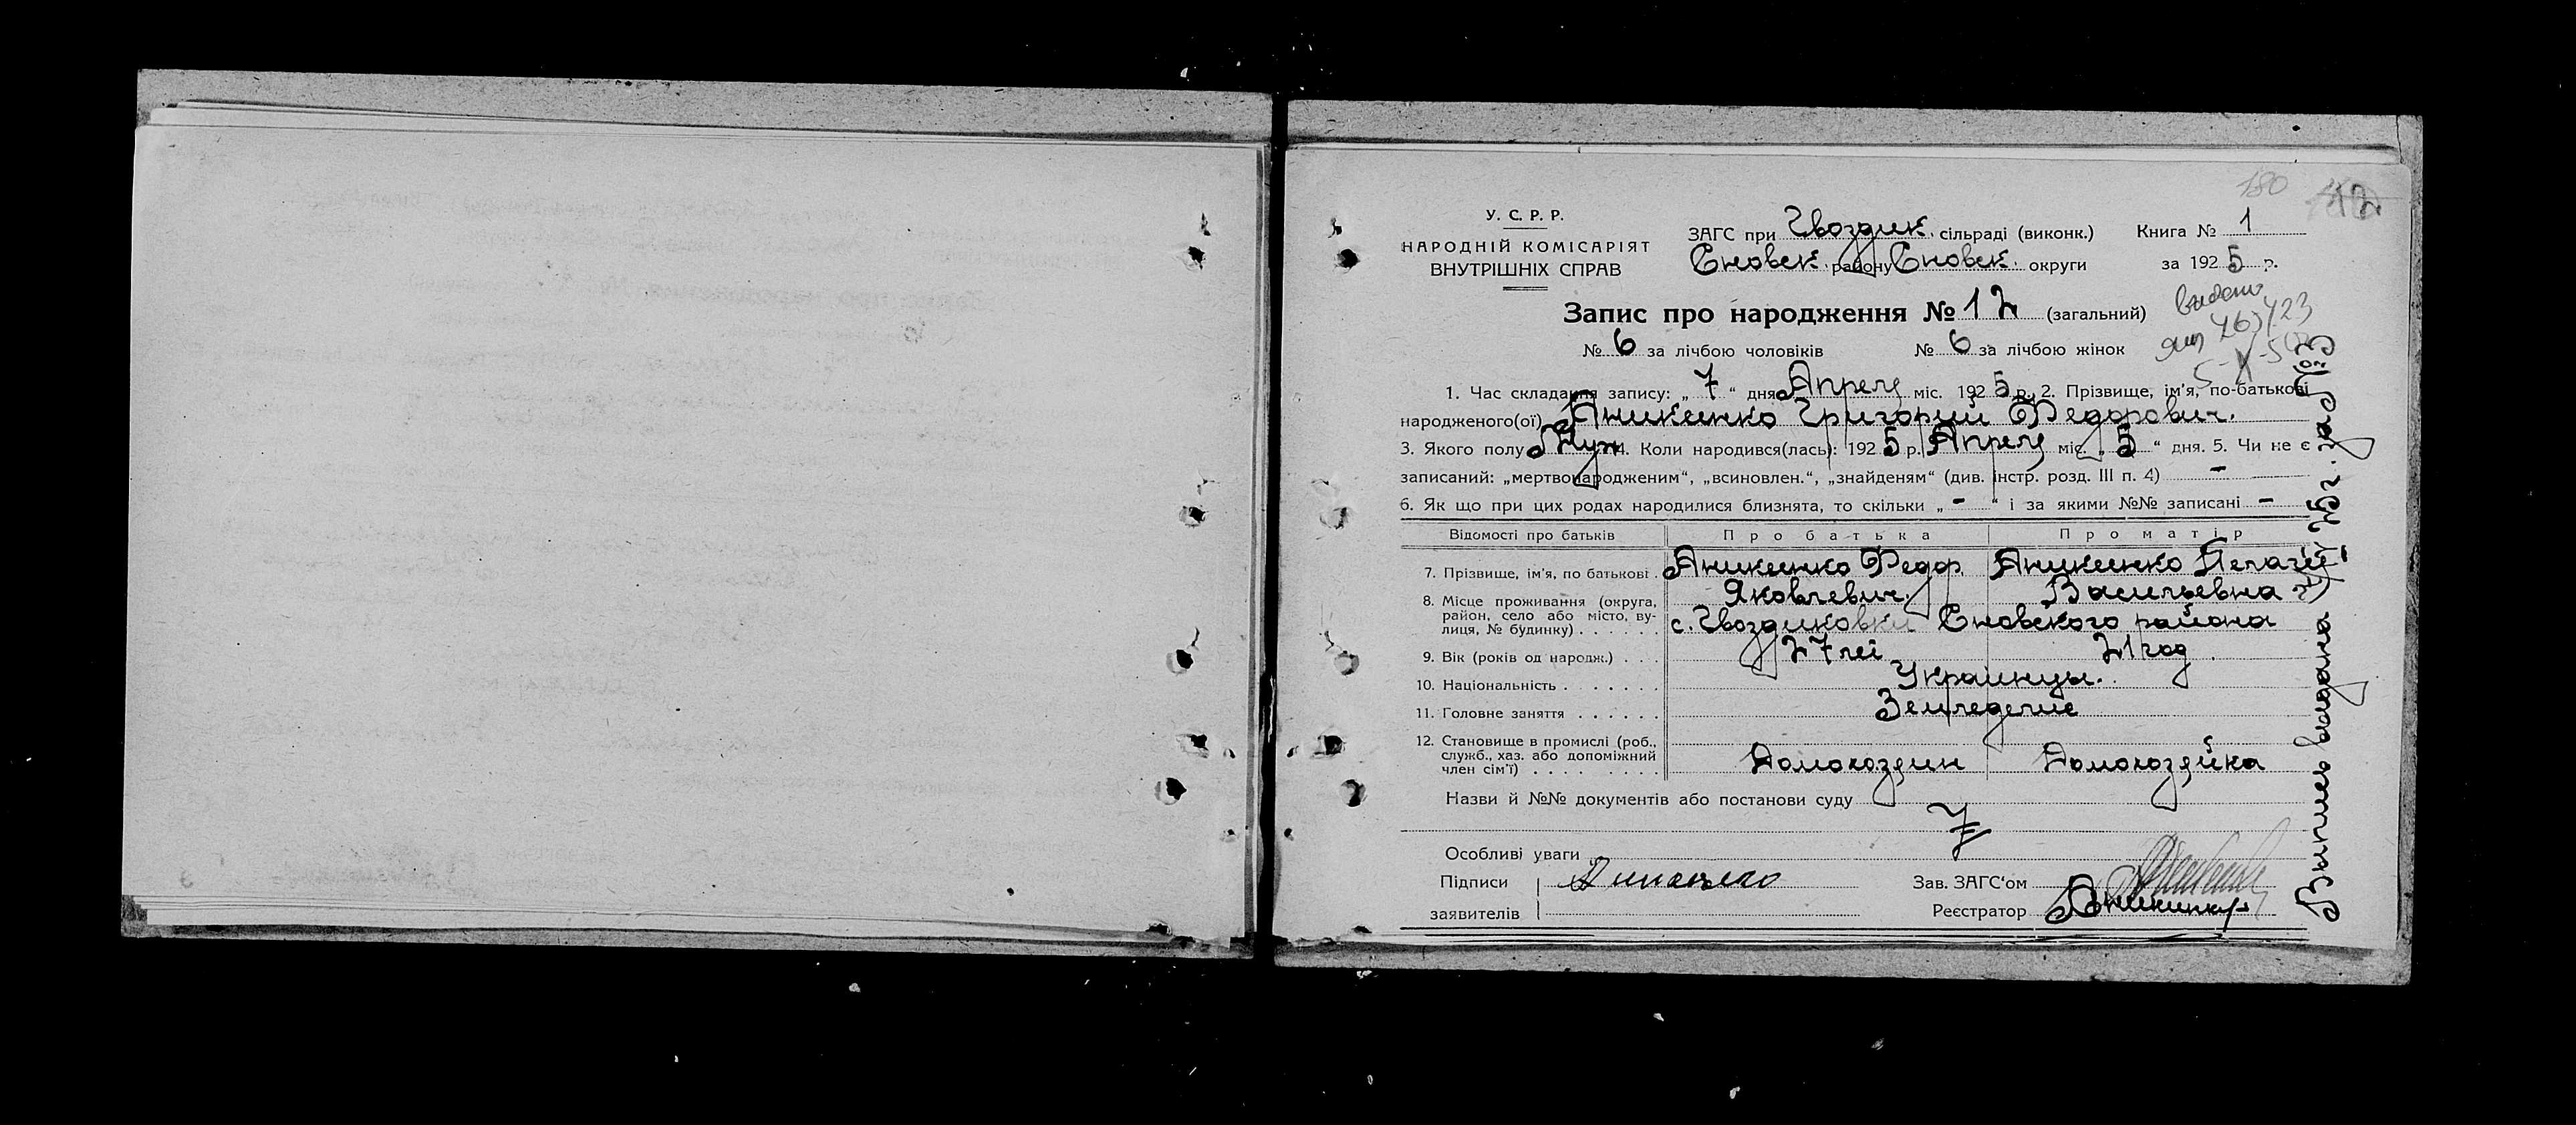 180
12
У. С. Р. Р.
НАРОДНІЙ КОМІСАРІЯТ
ВНУТРІШНІХ СПРАВ
ЗАГС при Гвоздик. сільраді (виконк.) Книга № 1
Сновск. району Сновск. округи за 1925 р.
Запис про народження № 12 (загальний)
видано
5-X-50
№ 6 за лічбою чоловіків № 6 за лічбою жінок
1. Час складання запису: „ 7 “ дня Апреля міс. 1925 р. 2. Прізвище, ім'я, по-батькові
народженого(ої) Аникеенко Григорий Федорович.
3. Якого полу Муж 4. Коли народився(лась): 1925 р. Апреля міс. „ 5 “ дня. 5. Чи не є
записаний: „мертвонародженим“, „всиновлен.“, „знайденям“ (див. інстр. розд. III п. 4) –
6. Як що при цих родах народилися близнята, то скільки „ – “ і за якими №№ записані –
Відомості про батьків Про батька Про матір
7. Прізвище, ім'я, по батькові . Аникеенко Федор Аникеенко Пелагея
Яковлевич. Васильевна
8. Місце проживання (округа,
район, село або місто, ву-
лиця, № будинку) . . . . . . с. Гвоздиковки Сновского района
9. Вік (років од народж.) . . . 27 лет 21 год
10. Національність . . . . . . . Украинцы.
11. Головне заняття . . . . . . Земледелие
12. Становище в промислі (роб.,
служб., хаз. або допоміжний
член сім'ї) . . . . . . . . . Домохозяин Домохозяйка
Назви й №№ документів або постанови суду
Особливі уваги
Підписи
заявителів
Зав. ЗАГС'ом
Реєстратор
Выпись выдана 7/ 25 г. за № 3